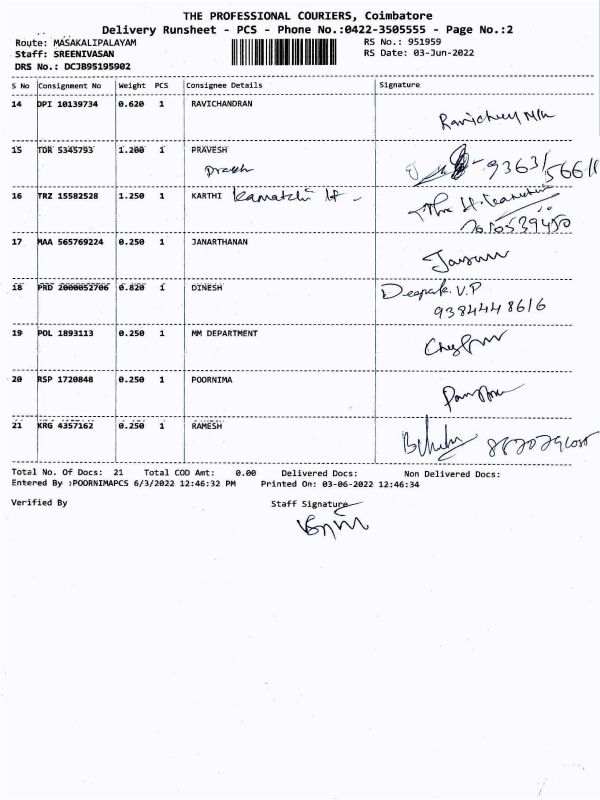 THE PROFESSIONAL COURIERS, Coimbatore
Delivery Runsheet - PCS - Phone No.:0422-3505555 - Page No.:2
Route: MASAKALIPALAYAM RS No.: 951959
Staff: SREENIVASAN RS Date: 03-Jun-2022
DRS No.: DCJB95195902
S No Consignment No Weight PCS Consignee Details Signature
14 DPI 10139734 0.620 1 RAVICHANDRAN
15 TDR 5345793 1.200 1 PRAVESH
16 TRZ 15582528 1.250 1 KARTHI Kamatchi
17 MAA 565769224 0.250 1 JANARTHANAN
18 PRD 2000052706 0.820 1 DINESH Deepak. V.P
9384448616
19 POL 1893113 0.250 1 MM DEPARTMENT
20 RSP 1720848 0.250 1 POORNIMA
21 KRG 4357162 0.250 1 RAMESH
Total No. Of Docs: 21 Total COD Amt: 0.00 Delivered Docs: Non Delivered Docs:
Entered By :POORNIMAPCS 6/3/2022 12:46:32 PM Printed On: 03-06-2022 12:46:34
Verified By Staff Signature